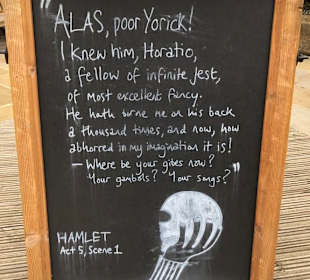 "ALAS, poor Yorick!
I knew him, Horatio,
a fellow of infinite jest,
of most excellent fancy.
He hath borne me on his back
a thousand times, and now, how
abhorred in my imagination it is!
– Where be your gibes now?
Your gambols? Your songs?"
HAMLET
Act 5, Scene 1